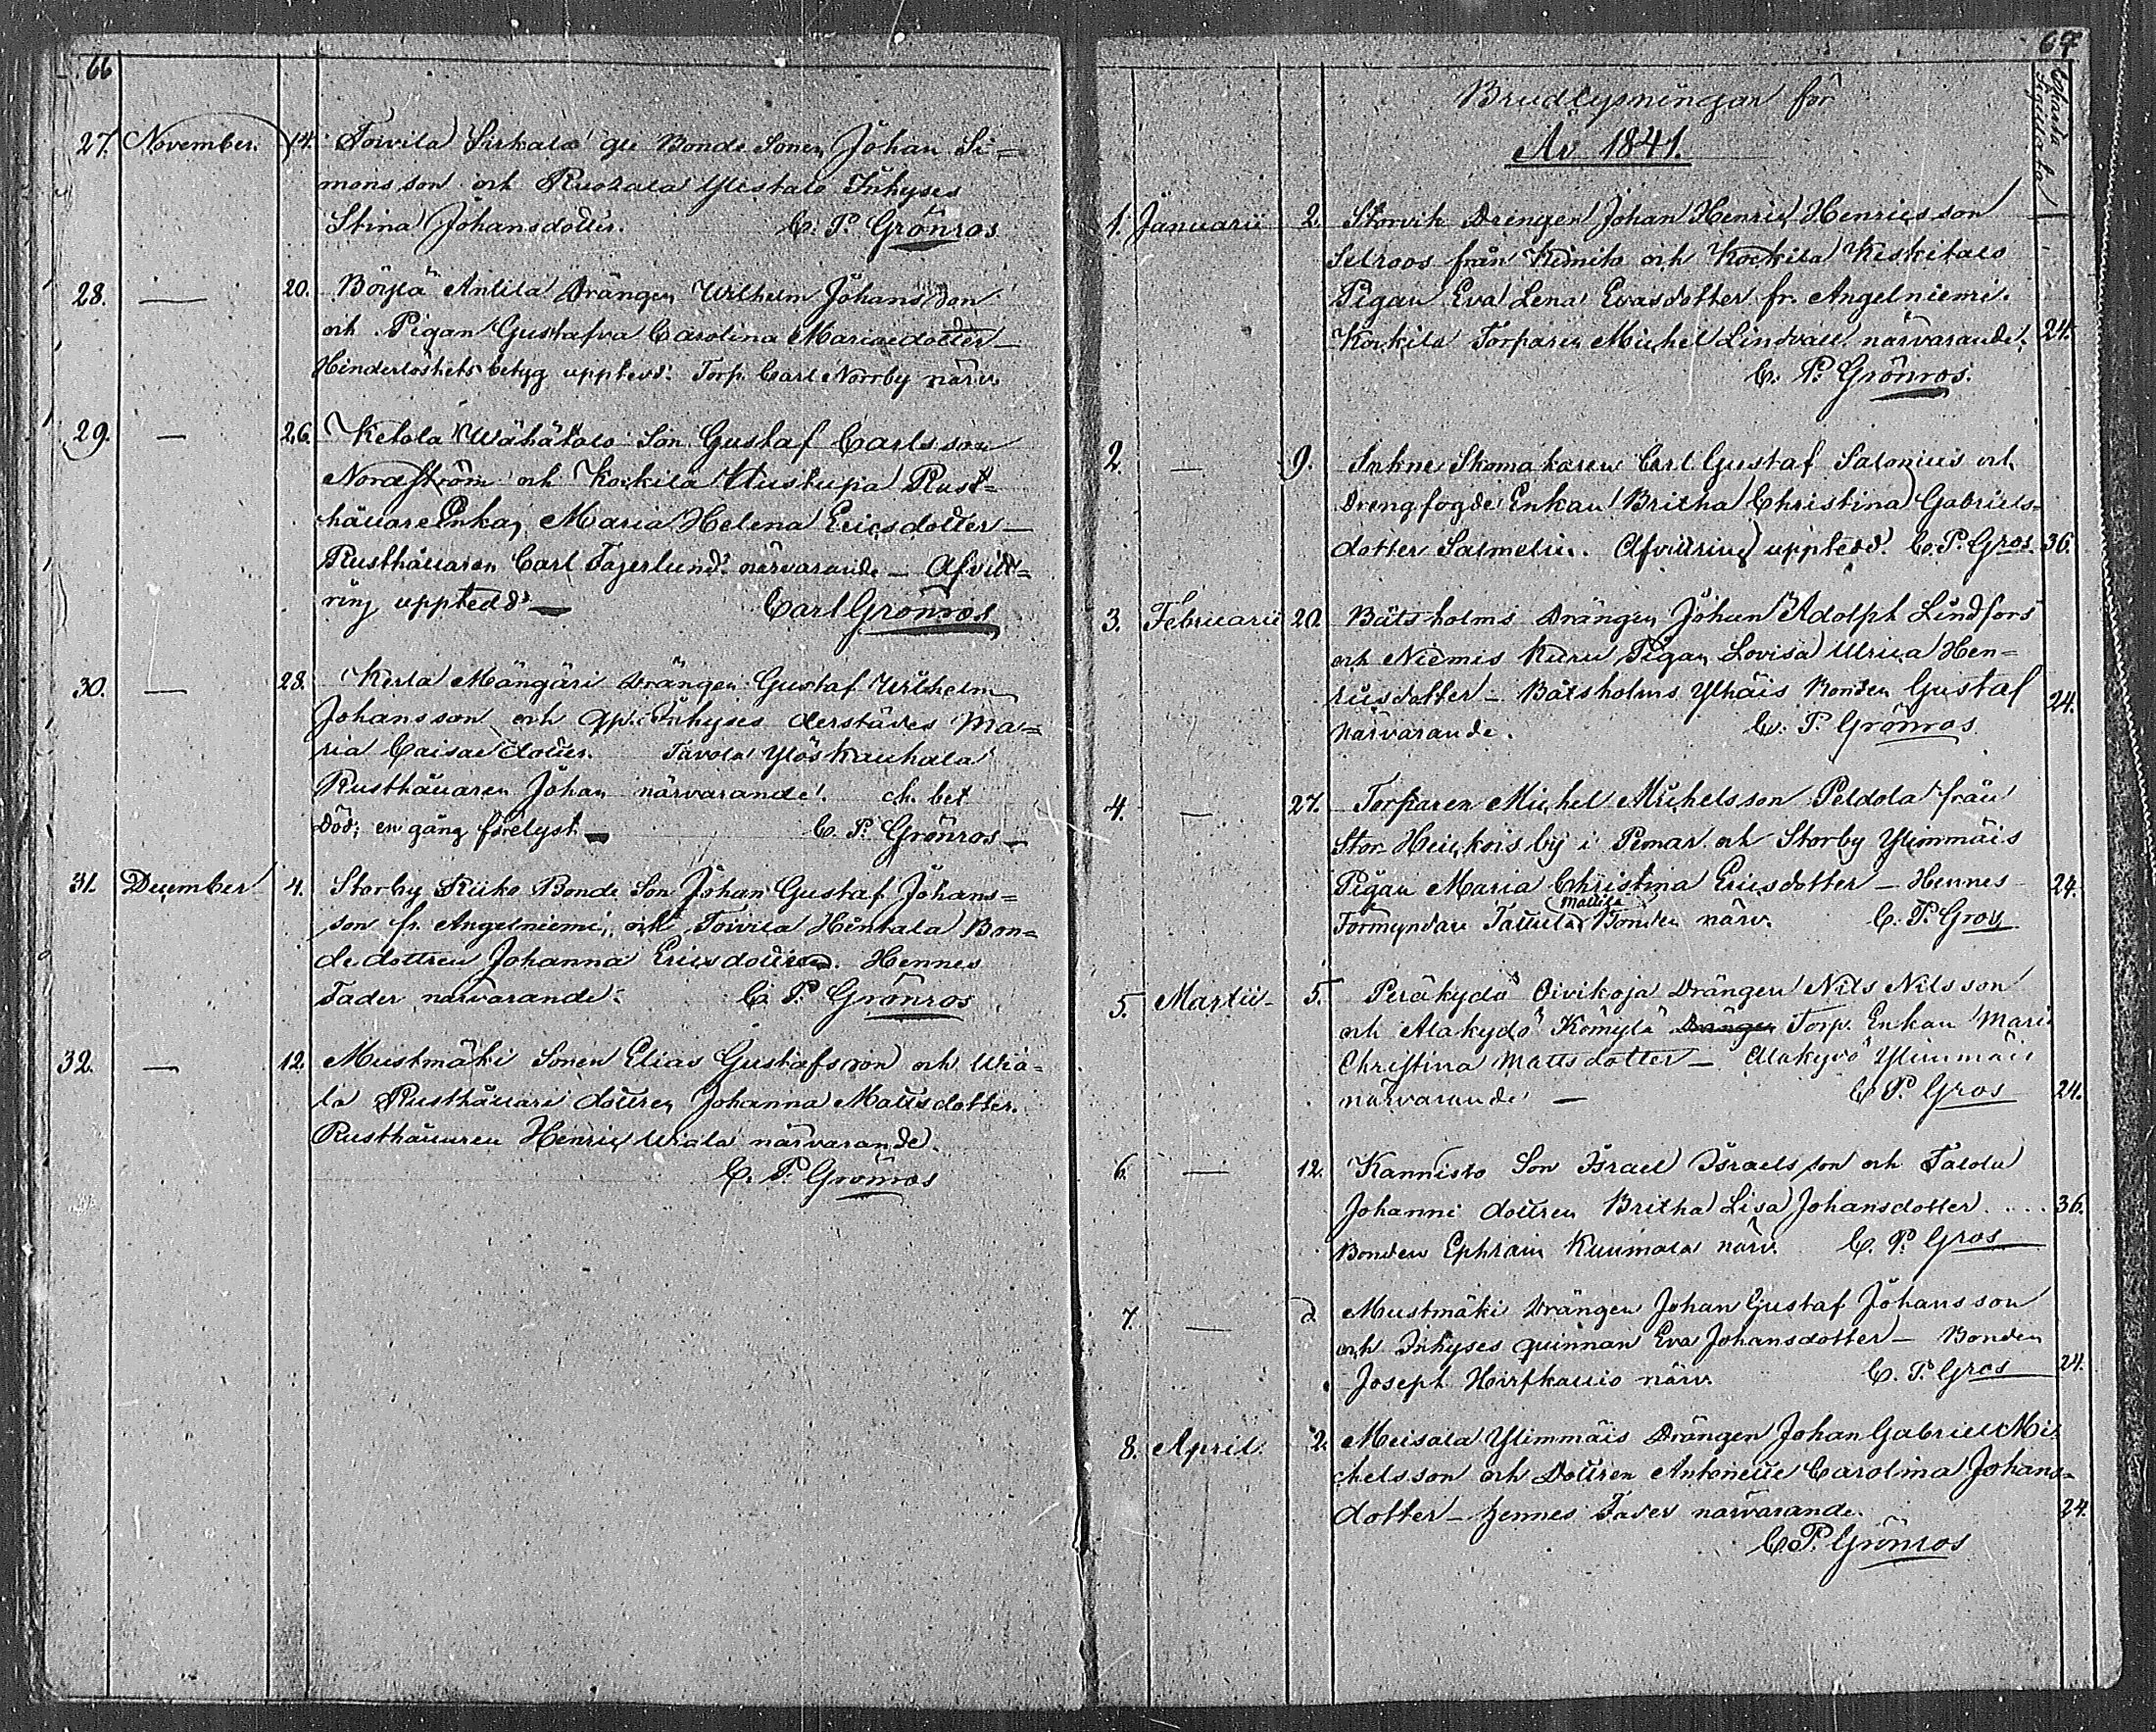 66
27. November. 14. Toivila Sirkala gle Bonde Sonen Johan Si=
mons son och Ruokala Ylistalo Inhyses
Stina Johansdotter. C. P. Grönros
28. — 20. Böylä Antila Drängen Wilhelm Johansson
och Pigan Gustafva Carolina Mariaedotter —
Hinderlöshets betyg uppteed. Torp. Carl Norrby närv.
29. — 26. Ketola Wähätalo Son Gustaf Carlsson
Nordström och Kockila Uustupa Rust=
hållare Enkan Maria Helena Ericsdotter —
Rusthållaren Carl Fagerlund närvarande — Afvitt=
ring uppteedd — Carl Grönros
30. — 28. Kerla Mängäri Drängen Gustaf Wilhelm
Johansson och qp. Inhyses derstädes Ma=
ria Caisaedotter. Tavola Yläskauhala
Rusthållaren Johan närvarande. ch. bet
Död; en gång förelyst — C. P. Grönros —
31. December 4. Storby Riiko Bonde Son Johan Gustaf Johans=
son fr. Angelniemi, och Toivila Hintala Bon=
dedottren Johanna Ericsdotter. Hennes
Fader närvarande. C. P. Grönros
32. — 12. Mustmäki Sonen Elias Gustafsson och Wia=
la Rusthållare dottren Johanna Mattsdotter.
Rusthållaren Henric Wiala närvarande.
C. P. Grönros
67
Brudlysningar för
År 1841.
1. Januarii 2. Storvik Drengen Johan Henric Henricsson
Selroos från Kimito och Kockila Keskitalo
Pigan Eva Lena Evasdotter fr. Angelniemi.
Kockila Torparen Michel Lindvall närvarande. 24.
C. P. Grönros.
2. — 9. Skomakaren Carl Gustaf Salonius och
Drengfogde Enkan Britha Christina Gabriels=
dotter Salmelin. Afvittring uppteedd. C. P. Gros 36.
3. Februarii 20 Båtsholms Drängen Johan Adolph Lindfors
och Niemis Kuru Pigan Lovisa Ulrica Hen=
ricsdotter — Båtsholms Ylhäis Bonden Gustaf 24.
närvarande. C. P. Grönros
4. — 27. Torparen Michel Michelsson Peldola från
Stor Heickois by i Pemar och Storby Ylimmäis
Pigan Maria Christina Ericsdotter — Hennes 24.
Förmyndare Tattula Mattila Bonden närv. C. P. Gros
5. Martii 5. Peräkydö Oivikoja Drängen Nils Nilsson
och Alakydö Kömylä Drängen Torp. Enkan Maria
Christina Mattsdotter — Alakydö Ylimmäis
närvarande — C. P. Gros 24.
6. — 12. Kannisto Son Israel Israelsson och Talola
Johanni dottren Britha Lisa Johansdotter .... 36.
Bonden Ephraim Kuumala närv. C. P. Gros
7. — d Mustmäki Drängen Johan Gustaf Johansson
och Inhyses quinnan Eva Johansdotter — Bonden
Joseph Hirfkallio närv. C. P. Gros 24.
8. April 2. Meisala Ylimmäis Drängen Johan Gabriel Mi=
chelsson och Dottren Antonette Carolina Johans=
dotter — hennes Fader närvarande. 24.
C. P. Grönros